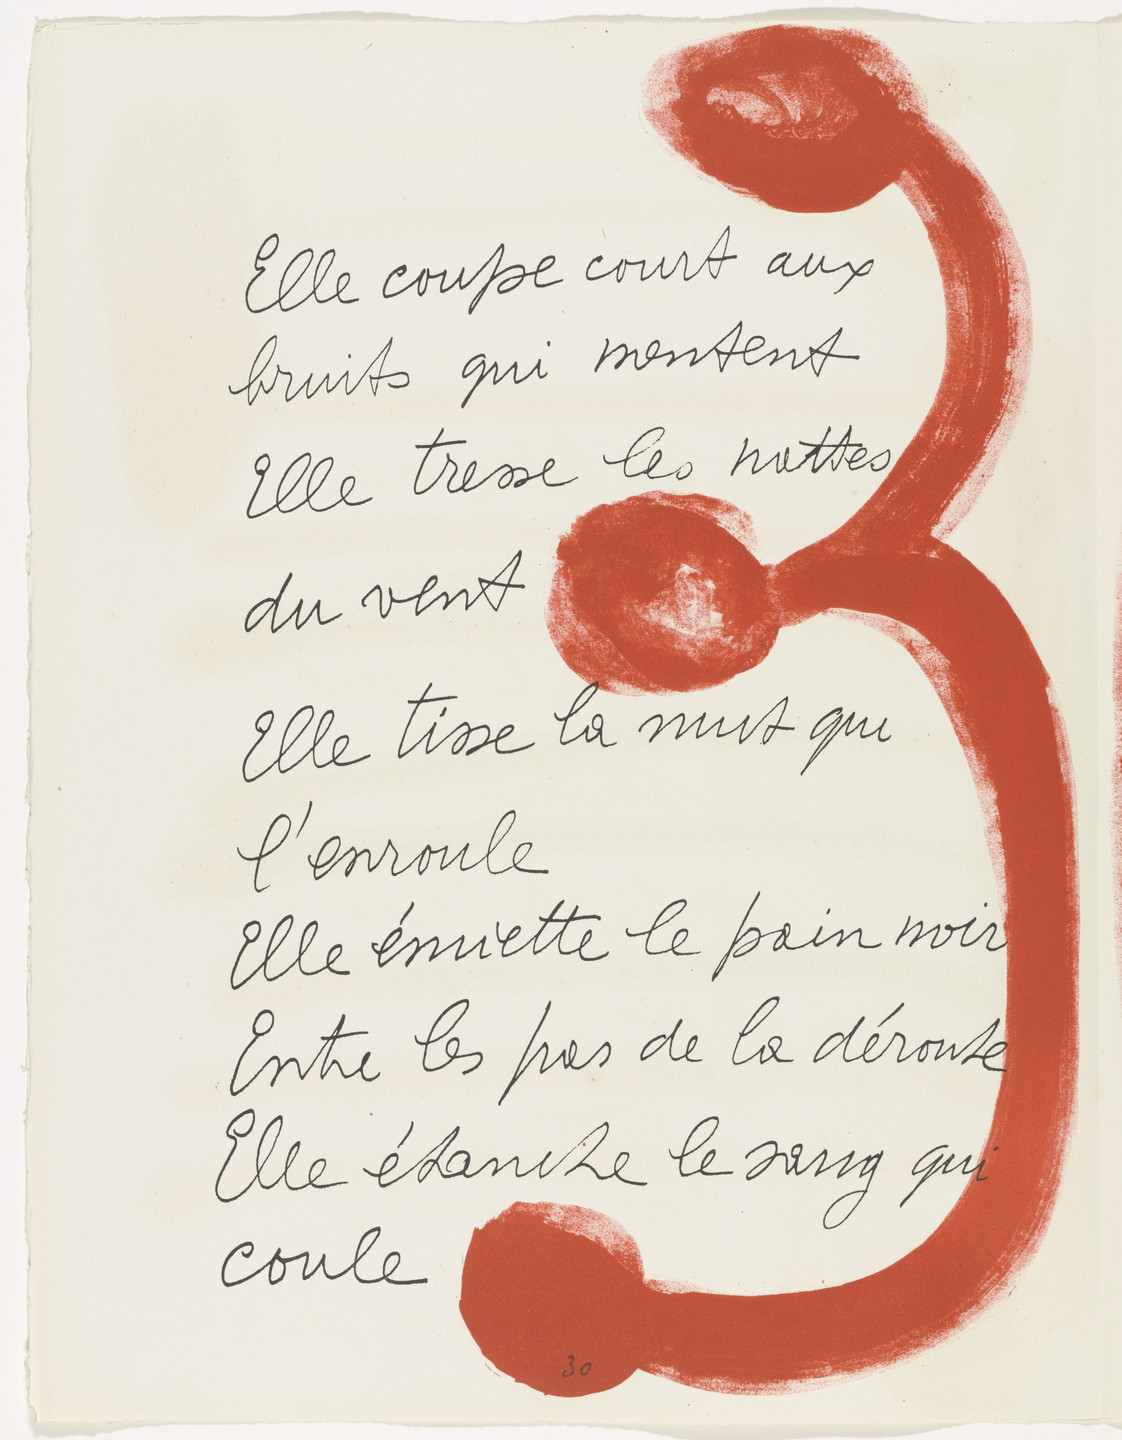 Elle coupe court aux
bruits qui montent
Elle tresse les nattes
du vent
Elle tisse la nuit qui
l'enroule
Elle émiette le pain noir
Entre les pas de la déroute
Elle étanche le sang qui
coule
30